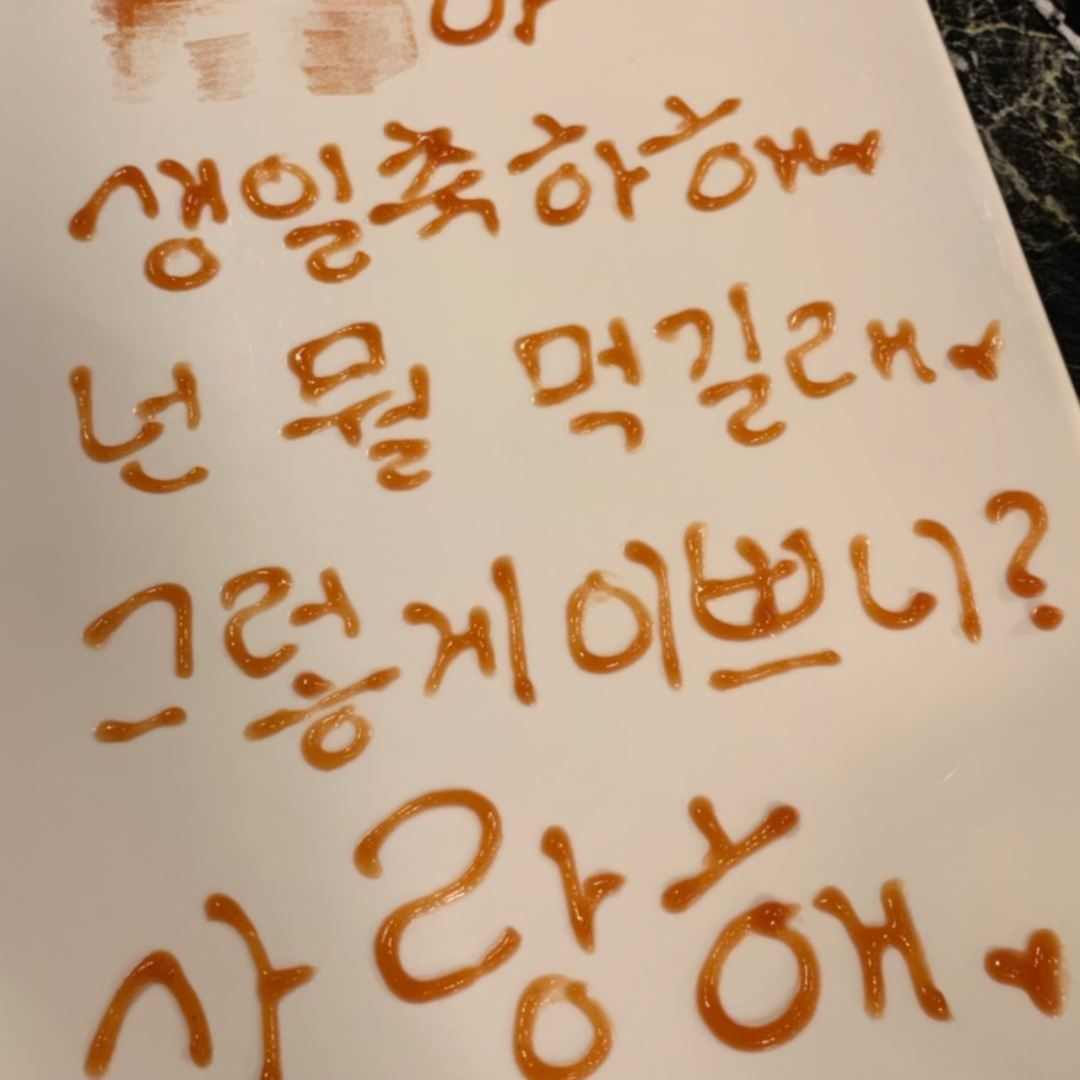 야
생일축하해♥
넌 뭘 먹길래♥
그렇게이쁘니?
사랑해♥